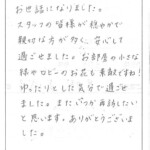 お世話になりました。
スタッフの皆様が穏やかで
親切な方が多く、安心して
過ごせました。お部屋の小さな
緑のロビーのお花も素敵ですね!
ゆったりとした気分で過ごせ
ました。またいつか再訪したい
と思います。ありがとうございま
した。